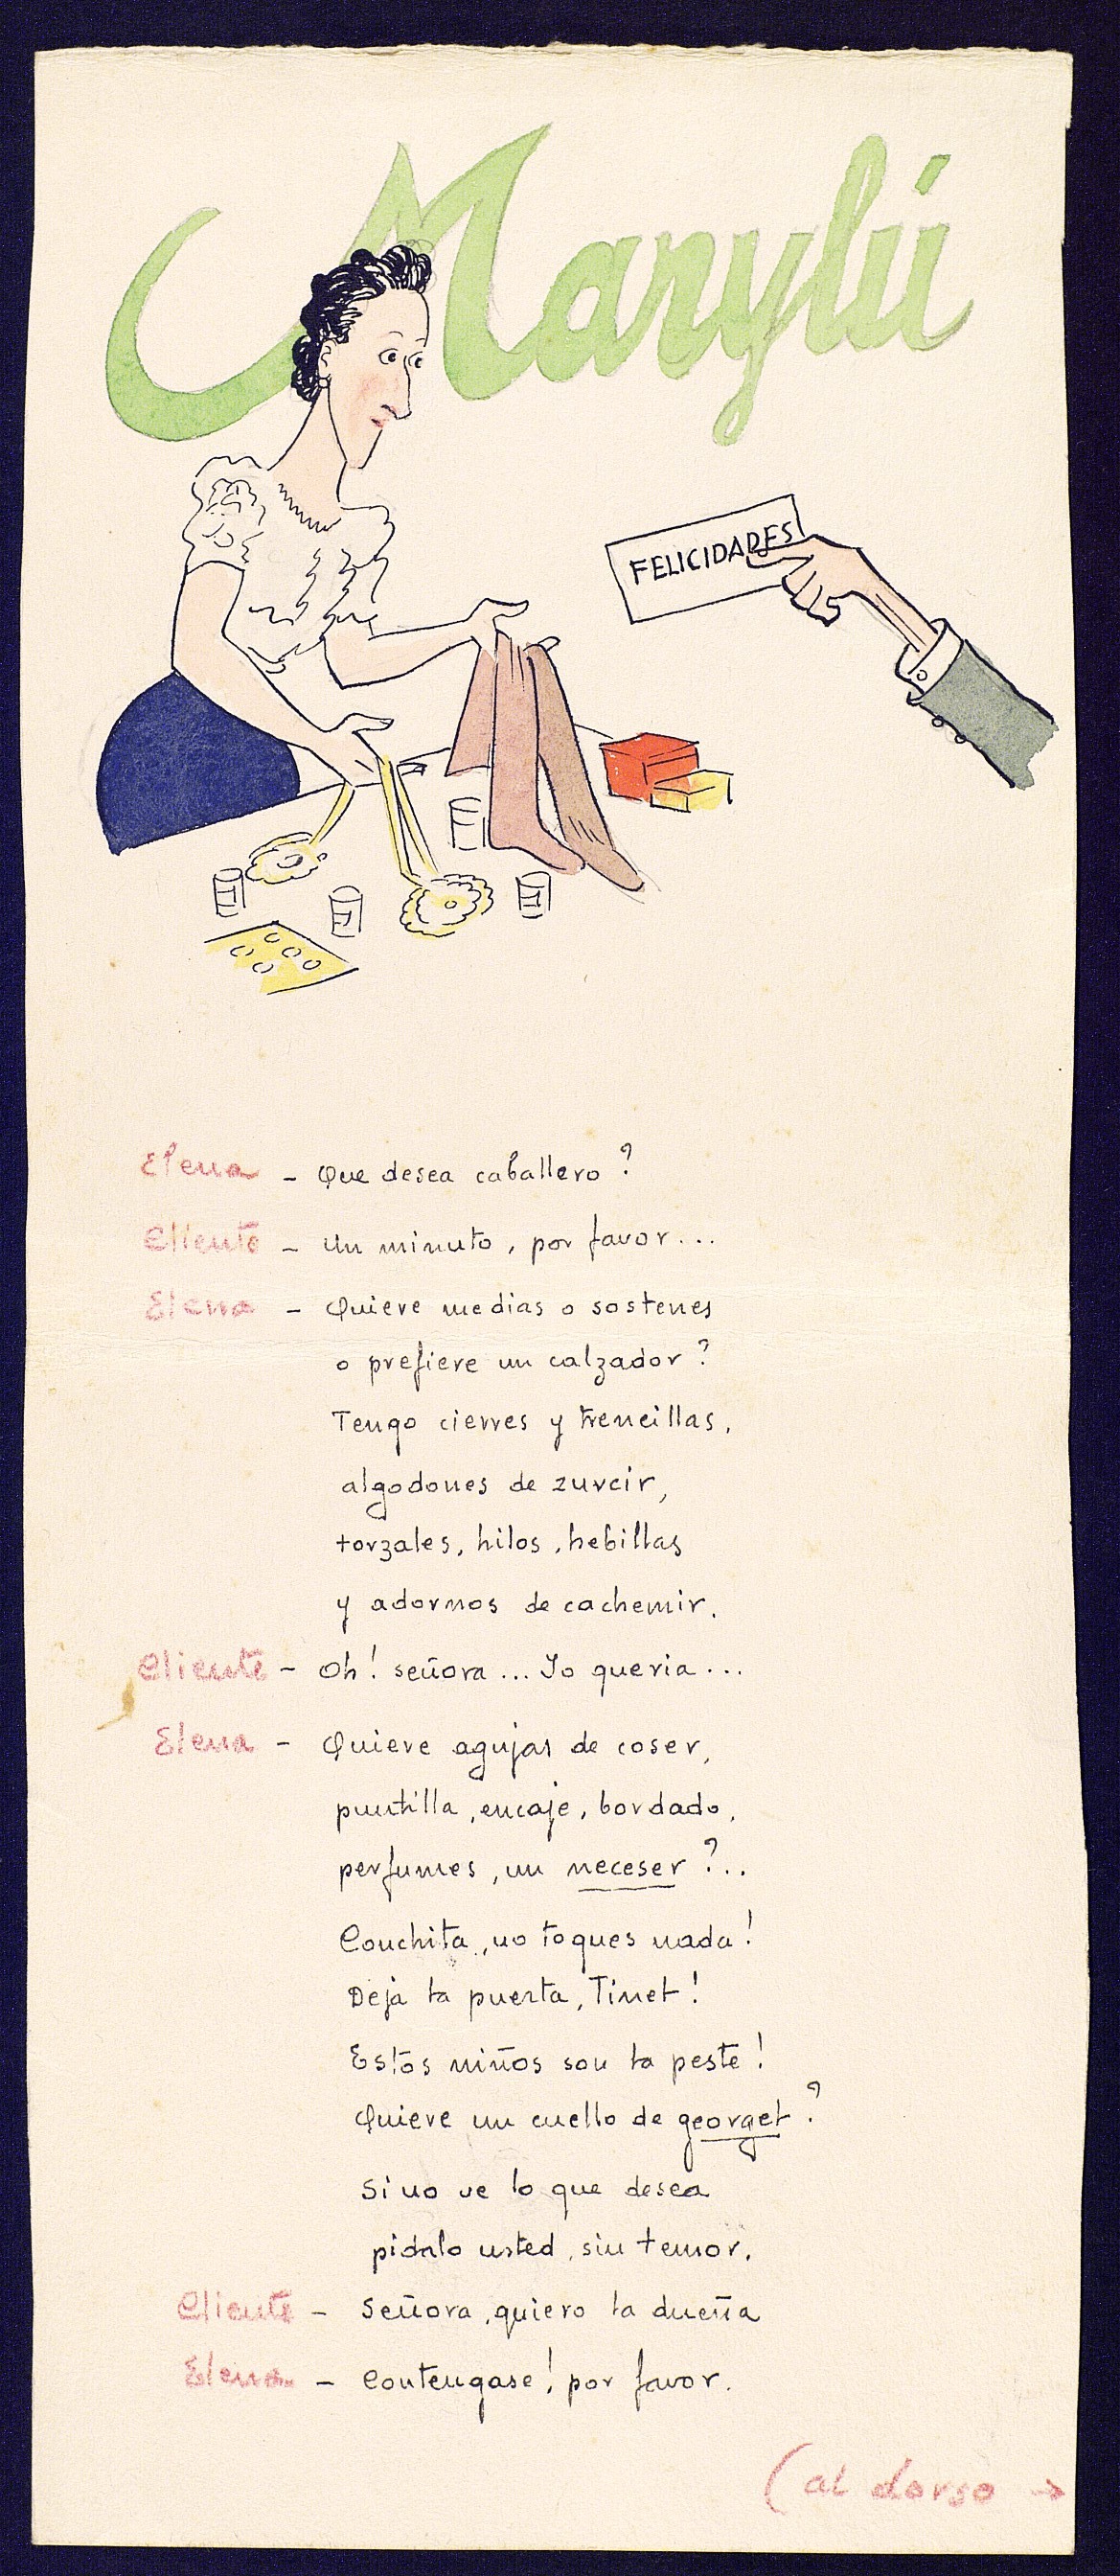 Marylú
FELICIDADES
Elena - Que desea caballero?
Cliente - Un minuto, por favor...
Elena - Quiere medias o sostenes
o prefiere un calzador?
Tengo cierres y trencillas,
algodones de zurcir,
torzales, hilos, hebillas
y adornos de cachemir.
Cliente - Oh! señora... Yo queria...
Elena - Quiere agujas de coser,
puntilla, encaje, bordado,
perfumes, un neceser?..
Conchita, no toques nada!
Deja la puerta, Tinet!
Estos niños son la peste!
Quiere un cuello de georget?
Si no ve lo que desea
pidalo usted, sin temor.
Cliente - Señora, quiero la dueña
Elena - Contengase! por favor.
(al dorso →